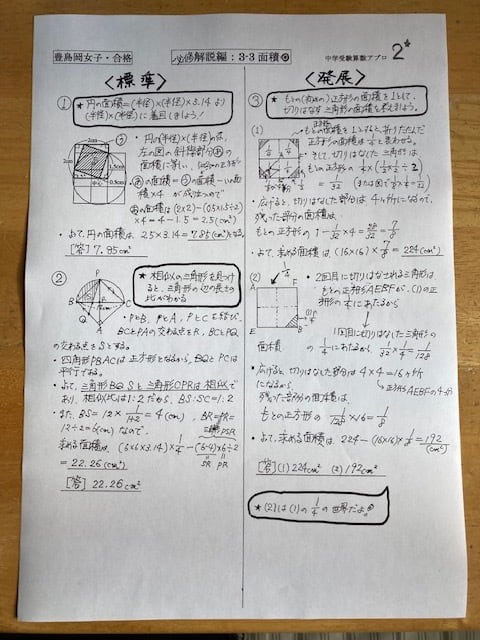 豊島岡女子・合格
必修解説編：3-3 面積
中学受験算数アプロ
2*
〈標準〉
①
★ 円の面積=(半径)×(半径)×3.14より
(半径)×(半径)に着目しましょう！
2cm
2cm
中心
0.5cm
・円の(半径)×(半径)の値は、
左の図の斜線部分の
面積に等しい。
面積×4 が成り立つので
の面積は (2×2)-(0.5×1.5÷2)
×4=4-1.5=2.5(cm²)
・よって、円の面積は 2.5×3.14=7.85(cm²)となる。
[答] 7.85cm²
②
★ 相似の三角形を見つけ
ると、三角形の辺の長さの
比がわかる
P
B
A
C
Q
・PとB、PとA、PとCを結び、
BCとPAの交わる点をR、BCとPQ
の交わる点をSとする。
・四角形PBACは正方形となるから、BQとPCは
平行である。
・よって、三角形BQSと三角形CPSは相似で
あり、相似比は1:2だから、BS:SC=1:2
・また、BS=12×1/(1+2)=4(cm)、BR=PR=
12÷2=6(cm)なので、
三角形PSR
求める面積は、(6×6×3.14)×1/4-(6-4)×6÷2
SR PR
=22.26(cm²)
[答] 22.26cm²
〈発展〉
③
★ もとの(最初の)正方形の面積を1として、
切りはなす三角形の面積を考えましょう。
(1)
・もとの面積を1とすると、折りたたんだ
正方形の面積は1/4と表わせる。
・そして、切りはなした三角形は
もとの正方形の 1/4×(1/2×1/2÷2)
=1/32
・広げると、切りはなした部分は4ヶ所になるので、
残った部分の面積は、
もとの正方形の 1-1/32×4=28/32=7/8
・よって、求める面積は (16×16)×7/8=224(cm²)
(2)
A
F
E
B
・2回目に切りはなされる三角形は、
もとの正方形AEBFが、(1)の正
方形の1/4にあたるから
1回目に切りはなした三角形の
面積の1/4にあたるから 1/32×1/4=1/128
・広げると、切りはなした部分は 4×4=16ヶ所
になるから、
正方形AEBFの4つ分
残った部分の面積は、
もとの正方形の 1/128×16=1/8
・よって、求める面積は、224-(16×16)×1/8=192
(cm²)
[答] (1) 224cm² (2) 192cm²
★ (2)は(1)の1/4の世界だよ